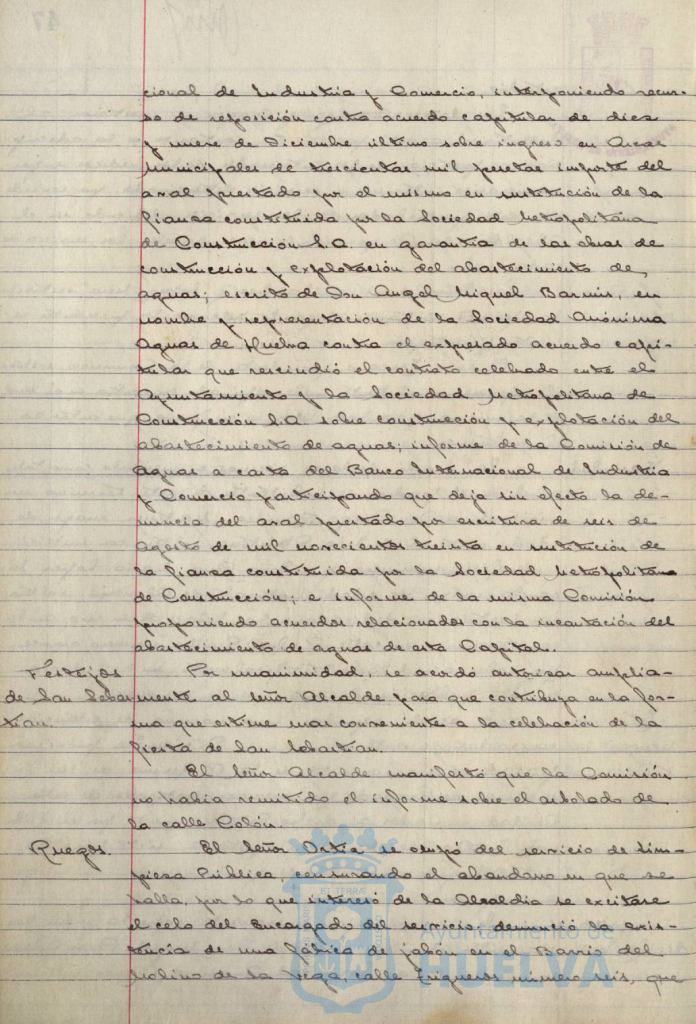 cional de Industria y Comercio, interponiendo recur-
so de reposición contra acuerdo capitular de diez
y nueve de Diciembre último sobre ingreso en Arcas
Municipales de trescientas mil pesetas importe del
aval prestado por el mismo en sustitución de la
fianza constituida por la Sociedad Metropolitana
de Construcción S.A. en garantía de las obras de
construcción y explotación del abastecimiento de
aguas; escrito de Don Angel Miguel en
nombre y representación de la Sociedad Anónima
Aguas de Huelva contra el expresado acuerdo capi-
tular que rescindió el contrato celebrado entre el
Ayuntamiento y la Sociedad Metropolitana de
Construcción S.A. sobre construcción y explotación del
abastecimiento de aguas; informe de la Comisión de
Aguas a carta del Banco Internacional de Industria
y Comercio participando que deja sin efecto la de-
nuncia del aval prestado por escritura de seis de
Agosto de mil novecientos treinta en sustitución de
la fianza constituida por la Sociedad Metropolitana
de Construcción; e informe de la misma Comisión
proponiendo acuerdos relacionados con la incautación del
abastecimiento de aguas de esta Capital.
Festejos
de San Sebas
tian.
Por unanimidad, se acordó autorizar amplia-
mente al Señor Alcalde para que contribuya en la for-
ma que estime mas conveniente a la celebración de la
fiesta de San Sebastian.
El Señor Alcalde manifestó que la Comisión
no había remitido el informe sobre el arbolado de
la calle Colón.
Ruegos.
El Señor Ortiz se ocupó del servicio de Lim-
pieza Pública, censurando el abandono en que se
halla, por lo que interesó de la Alcaldia se excitase
el celo del Encargado del servicio; denunció la exis-
tencia de una fábrica de jabón en el Barrio del
Molino de la Vega, calle Trigueros número seis, que
Ayuntamiento de
HUELVA